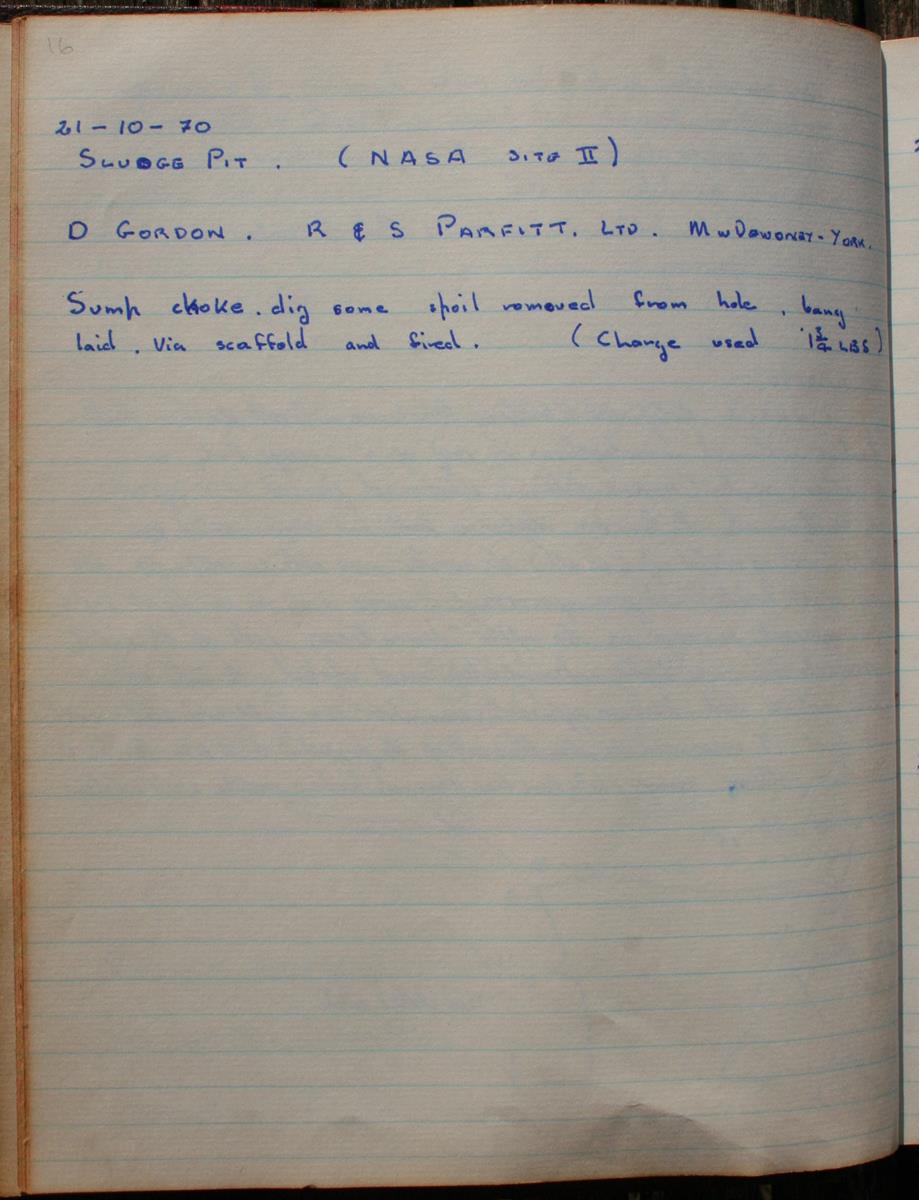 16
21-10-70
SLUDGE PIT. (NASA SITE II)
D GORDON. R & S PARFITT. LTD. M W DEWONEY-YORK.
Sump choke. dig some spoil removed from hole, bang
laid. Via scaffold and fired. (Charge used 1 3/4 LBS)